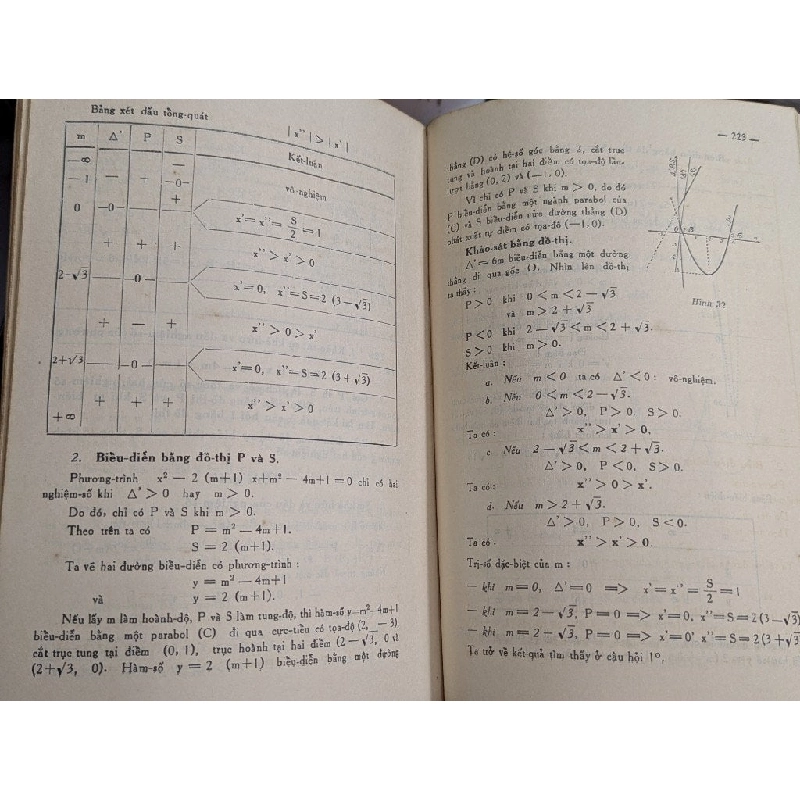 Bảng xét dấu tổng-quát
| x'' | > | x' |
m Δ' P S Kết-luận
−∞ —
−1 — — —0— vô-nghiệm
+
0 —0— x' = x'' = S/2 = 1
+ + + x'' > x' > 0
2−√3 —0— x' = 0, x'' = S = 2 (3 − √3)
+ — + x'' > 0 > x'
2+√3 —0— x' = 0, x'' = S = 2 (3 + √3)
+ + + x'' > x' > 0
+∞
2. Biểu-diễn bằng đồ-thị P và S.
Phương-trình x² — 2 (m+1) x+m² — 4m+1 = 0 chỉ có hai
nghiệm-số khi Δ' > 0 hay m > 0.
Do đó, chỉ có P và S khi m > 0.
Theo trên ta có P = m² — 4m+1.
S = 2 (m+1).
Ta vẽ hai đường biểu-diễn có phương-trình :
y = m² — 4m+1
và y = 2 (m+1).
Nếu lấy m làm hoành-độ, P và S làm tung-độ, thì hàm-số y=m²–4m+1
biểu-diễn bằng một parabol (C) đi qua cực-tiểu có tọa-độ (2, — 3)
cắt trục tung tại điểm (0, 1), trục hoành tại hai điểm (2 — √3, 0) và
(2+√3, 0). Hàm-số y = 2 (m+1) biểu-diễn bằng một đường
— 223 —
thẳng (D) có hệ-số góc bằng 2, cắt trục
tung và hoành tại hai điểm có tọa-độ lần-
lượt bằng (0, 2) và (—1, 0).
Vì chỉ có P và S khi m > 0, do đó
P biểu-diễn bằng một ngành parabol của
(C) và S biểu-diễn nửa đường thẳng (D)
phát xuất tự điểm có tọa-độ (—1, 0).
Khảo-sát bằng đồ-thị.
Δ' = 6m biểu-diễn bằng một đường
thẳng đi qua gốc O. Nhìn lên đồ-thị
ta thấy :
Hình 39
P > 0 khi 0 < m < 2 — √3
và m > 2 + √3
P < 0 khi 2 — √3 < m < 2 + √3.
S > 0 khi m > 0.
Kết-luận :
a. Nếu m < 0 ta có Δ' < 0 : vô-nghiệm.
b. Nếu 0 < m < 2 — √3.
Δ' > 0, P > 0 S > 0.
Ta có : x'' > x' > 0.
c Nếu 2 — √3 < m < 2 + √3.
Δ' > 0, P < 0, S > 0.
Ta có : x'' > 0 > x'.
d. Nếu m > 2 + √3.
Δ' > 0, P > 0, S < 0.
Ta có . x'' > x' > 0
Trị-số đặc-biệt của m :
— khi m = 0, Δ' = 0 ⟹ x' = x'' = S/2 = 1
— khi m = 2 — √3, P = 0 ⟹ x' = 0, x'' = S = 2 (3 — √3)
— khi m = 2 — √3, P = 0 ⟹ x' = 0, x'' = S = 2 (3 + √3)
Ta trở về kết-quả tìm thấy ở câu hỏi 1°.